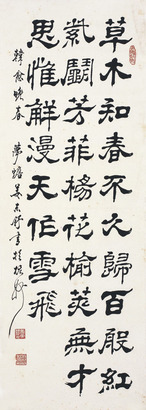 草木知春不久歸百般紅
紫鬭芳菲楊花榆莢無才
思惟解漫天作雪飛
韓愈晚春
書於杭州